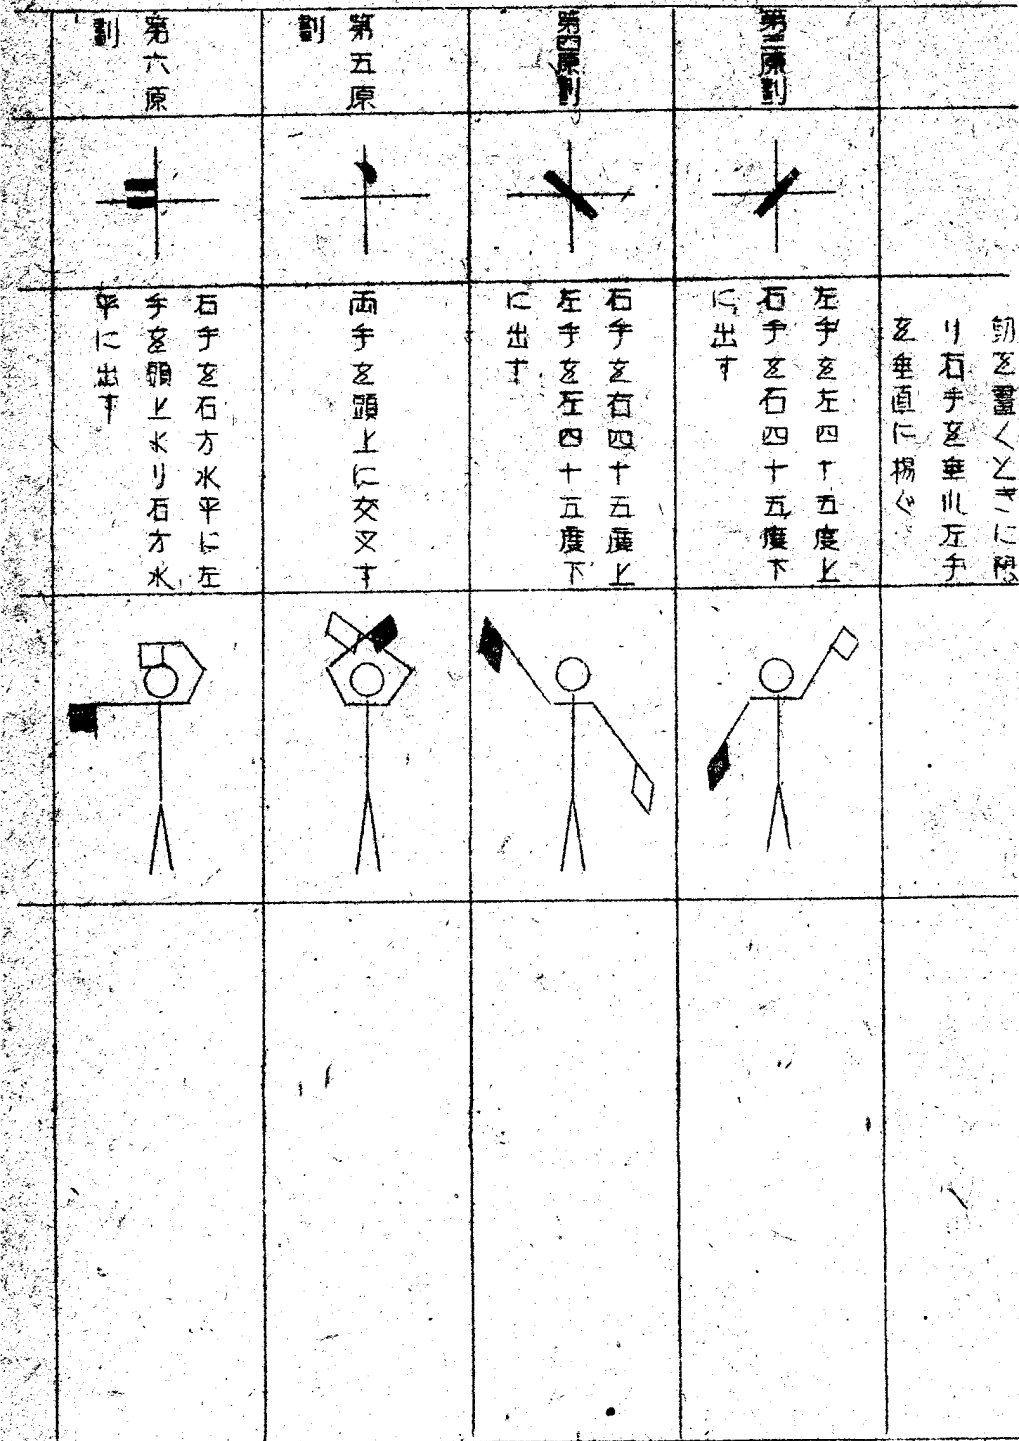 を置くときに限
り右手を垂れ左手
を垂直に揚ぐ
第三原劃
左手を左四十五度上
右手を右四十五度下
に出す
第四原劃
右手を右四十五度上
左手を左四十五度下
に出す
第五原
劃
両手を頭上に交叉す
第六原
劃
右手を右方水平に左
手を頭上水り右方水
平に出す